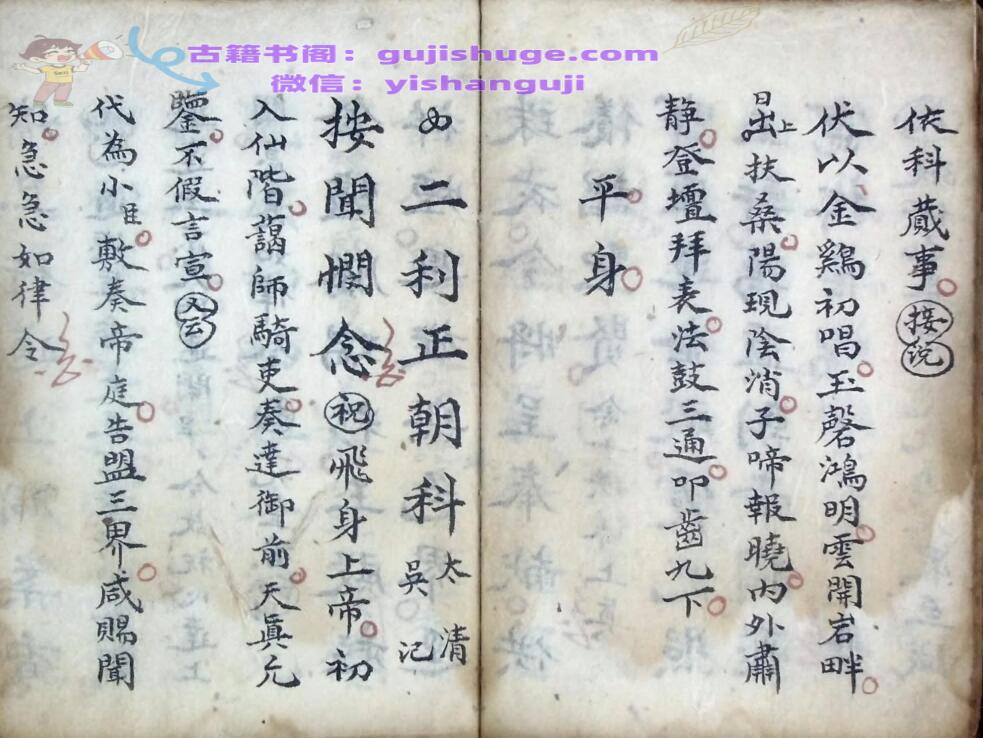 古籍书阁：gujishuge.com
微信：yishanguji
依科蕆事 接説
伏以金鷄初唱玉磬鴻明雲開岩畔
日出上扶桑陽現陰消子啼報曉内外肅
静登壇拜表法鼓三通叩齒九下
平身
二利正朝科 太清 吳 记
按聞憫念 祝 飛身上帝初
入仙階藹師騎吏奏達御前天眞允
鑒不假言宣 又云
代為小臣敷奏帝庭告盟三界咸賜聞
知急急如律令